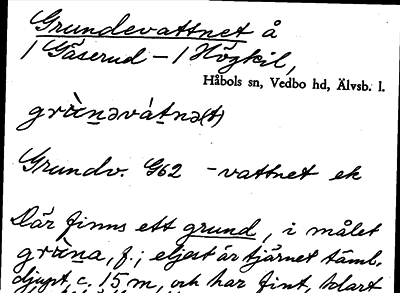 Grundevattnet å
1 Gåserud – 1 Högkil,
Håbols sn, Vedbo hd, Älvsb. l.
grùn̲əvát̲nə(t)
Grundv. G62 -vattnet ek
Där finns ett grund, i målet
grùna, f.; eljest är tjärnet täml.
djupt, c. 15 m, och har fint, klart